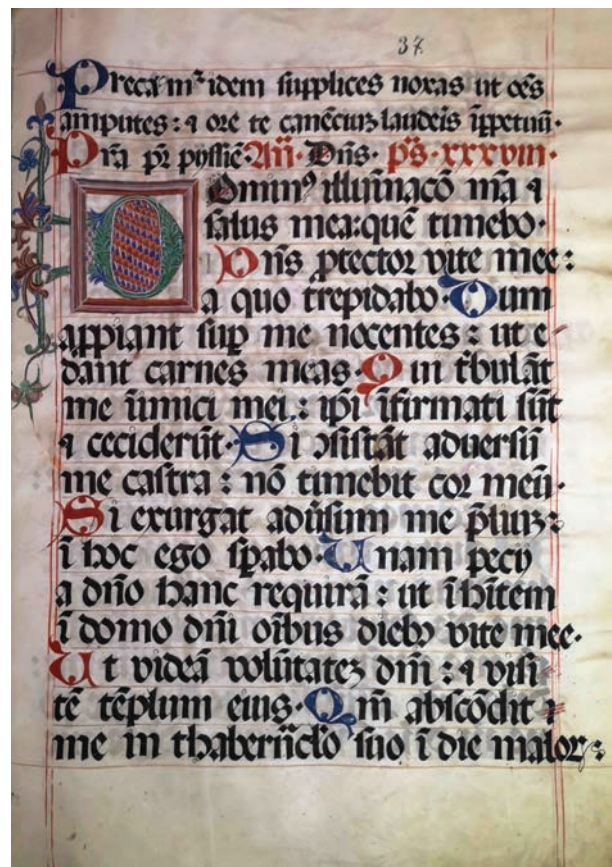 37
Precam̃ idem supplices noxas ut oẽs
amputes: ⁊ ore te canẽtiuꝫ laudeis ĩppetuũ.
Pr̃a pr̃ pyssiẽ. Añ. Dñs. p̃s. xxxviii.
Dominꝰ illũinacõ m̃a ⁊
salus mea: quẽ timebo.
Dñs ꝓtector vite mee:
a quo trepidabo. Dum
appiant suꝑ me nocentes: ut e
dant carnes meas. Qui tribulãt
me inimici mei: ip̃i ĩfirmati sũt
⁊ ceciderũt. Si ↄsistãt adversũ
me castra: nõ timebit cor meũ.
Si exurgat adũsum me p̃liuꝫ:
ĩ hoc ego sꝑabo. Unam pecy
a dño hanc requirã: ut ĩhĩtem
ĩ domo dñi oĩbus diebꝫ vite mee.
Ut videã volũtateꝫ dñi: ⁊ visi
tẽ tẽplum eius. Qm̃ abscõdit
me in thaberñclo suo ĩ die malor: